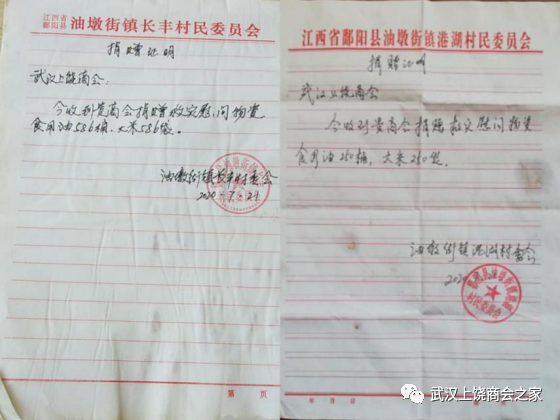 江西省
鄱阳县 油墩街镇长丰村民委员会
捐赠证明
武汉上饶商会:
今收到贵商会捐赠救灾慰问物资
食用油586桶,大米586袋。
油墩街镇长丰村委会
2020.7.29
第 页
江西省鄱阳县油墩街镇港湖村民委员会
捐赠证明
武汉上饶商会
今收到贵商会捐赠救灾慰问物资
食用油250桶,大米250袋。
油墩街镇港湖村委会
村民委员会
年 月 日
武汉上饶商会之家